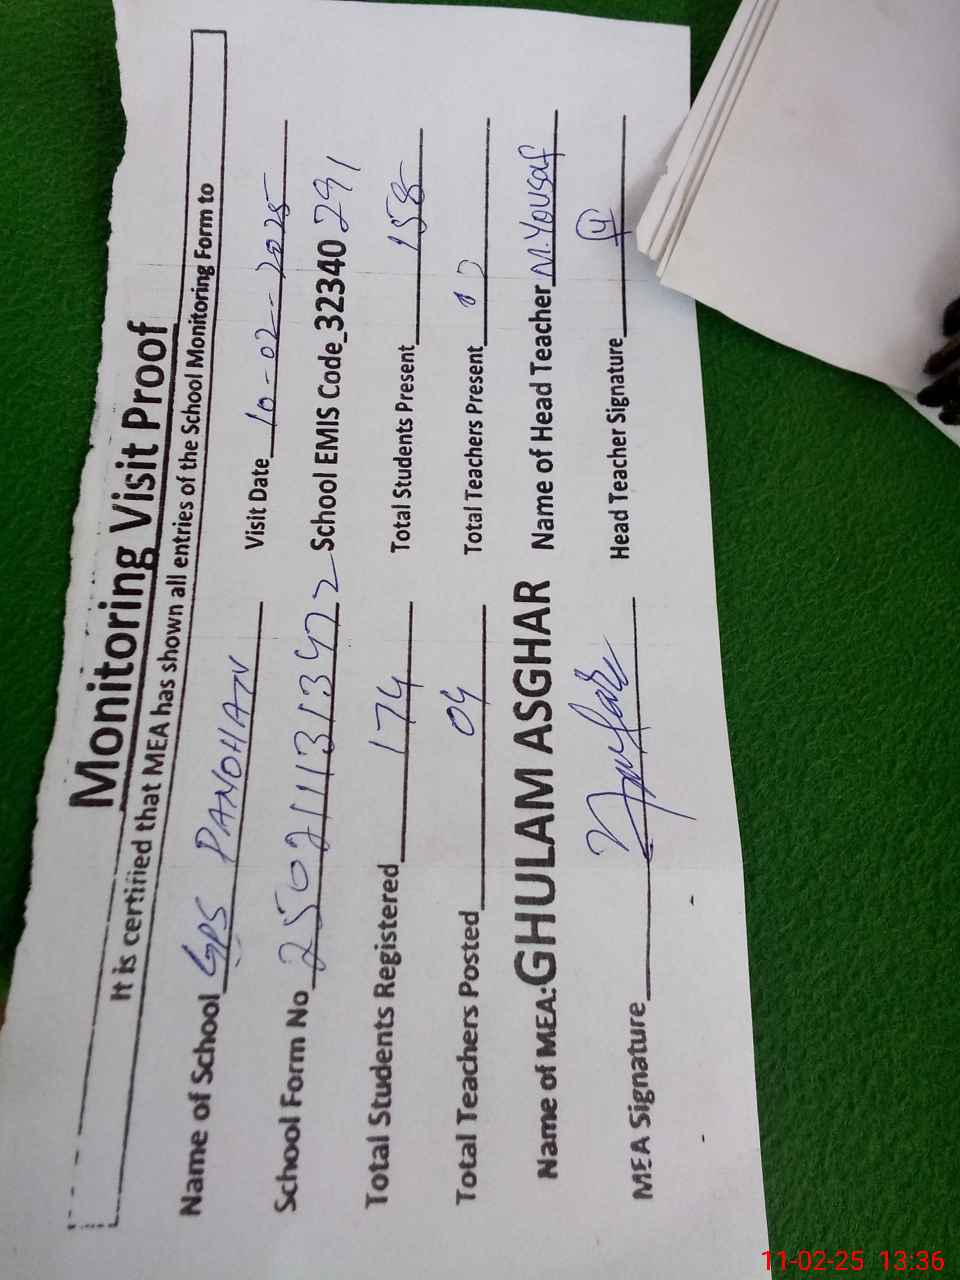 Monitoring Visit Proof
It is certified that MEA has shown all entries of the School Monitoring Form to
Name of School GPS PANOHAN Visit Date 10-02-2025
School Form No 2502111313472 School EMIS Code_32340 291
Total Students Registered 174 Total Students Present 158
Total Teachers Posted 04 Total Teachers Present
Name of MEA: GHULAM ASGHAR Name of Head Teacher M. Yousaf
MEA Signature Head Teacher Signature
11-02-25 13:36